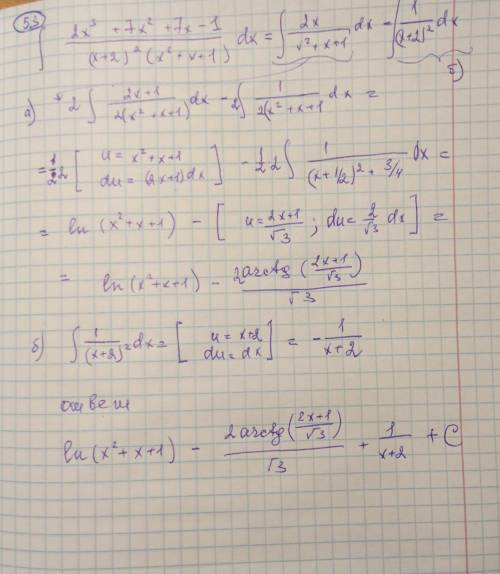 53
∫ (2x³ + 7x² + 7x - 1) / ((x+2)² (x² + x + 1)) dx = ∫ 2x / (x² + x + 1) dx - ∫ 1 / (x+2)² dx
б)
а) 2 ∫ (2x+1) / (2(x² + x + 1)) dx - 2 ∫ 1 / (2(x² + x + 1)) dx =
= 1/2 · 2 [ u = x² + x + 1 ; du = (2x+1) dx ] - 1/2 · 2 ∫ 1 / ((x + 1/2)² + 3/4) dx =
= ln (x² + x + 1) - [ u = (2x+1)/√3 ; du = 2/√3 dx ] =
= ln (x² + x + 1) - 2 arctg ((2x+1)/√3) / √3
б) ∫ 1 / (x+2)² dx = [ u = x+2 ; du = dx ] = - 1 / (x+2)
ответ
ln (x² + x + 1) - 2 arctg ((2x+1)/√3) / √3 + 1 / (x+2) + C